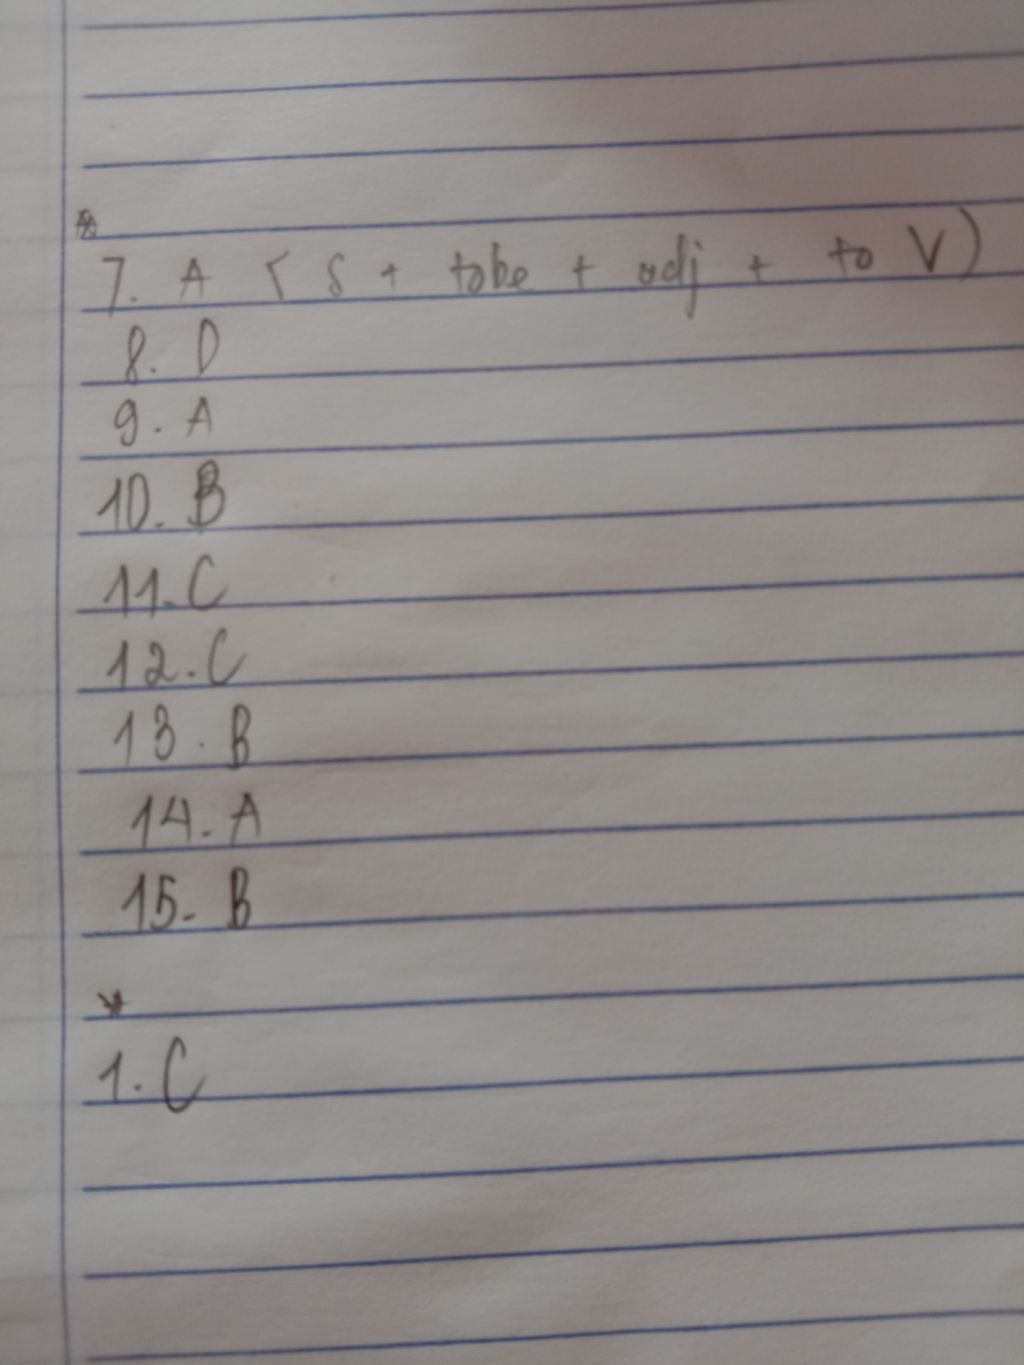 *
7. A ( S + tobe + adj + to V )
8. D
9. A
10. B
11. C
12. C
13. B
14. A
15. B
*
1. C